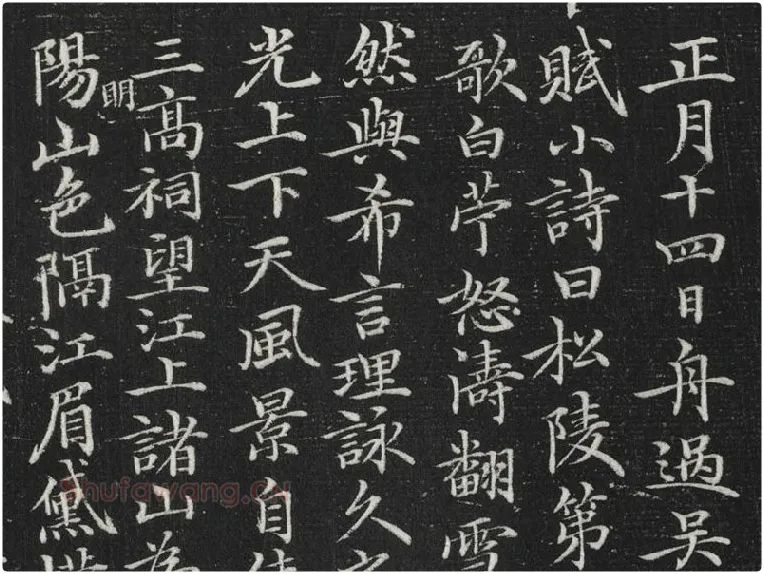 正月十四日舟過吳
賦小詩曰松陵第
歌白苧怒濤翻雪
然與希言理詠久
光上下天風景自
三高祠望江上諸山為
眀
陽山色隔江眉黛
shufawang.cn